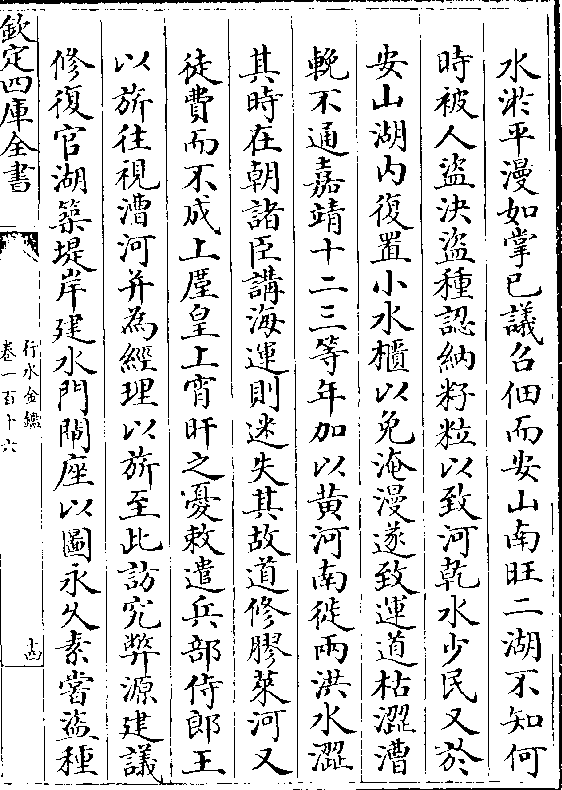 水淤平漫如掌已議召佃而安山南旺二湖不知何
時被人盜決盜種認納籽粒以致河乾水少民又於
安山湖内復置小水櫃以免淹漫遂致運道枯澀漕
輓不通嘉靖十二三等年加以黄河南徙兩洪水澀
其時在朝諸臣講海運則迷失其故道修膠萊河又
徒費而不成上厪皇上宵旰之憂敕遣兵部侍郎王
以旂往視漕河并為經理以旂至此訪究弊源建議
修復官湖築堤岸建水門閘座以圖永久素嘗盜種
欽定四庫全書
行水金鑑
卷一百十六
十四